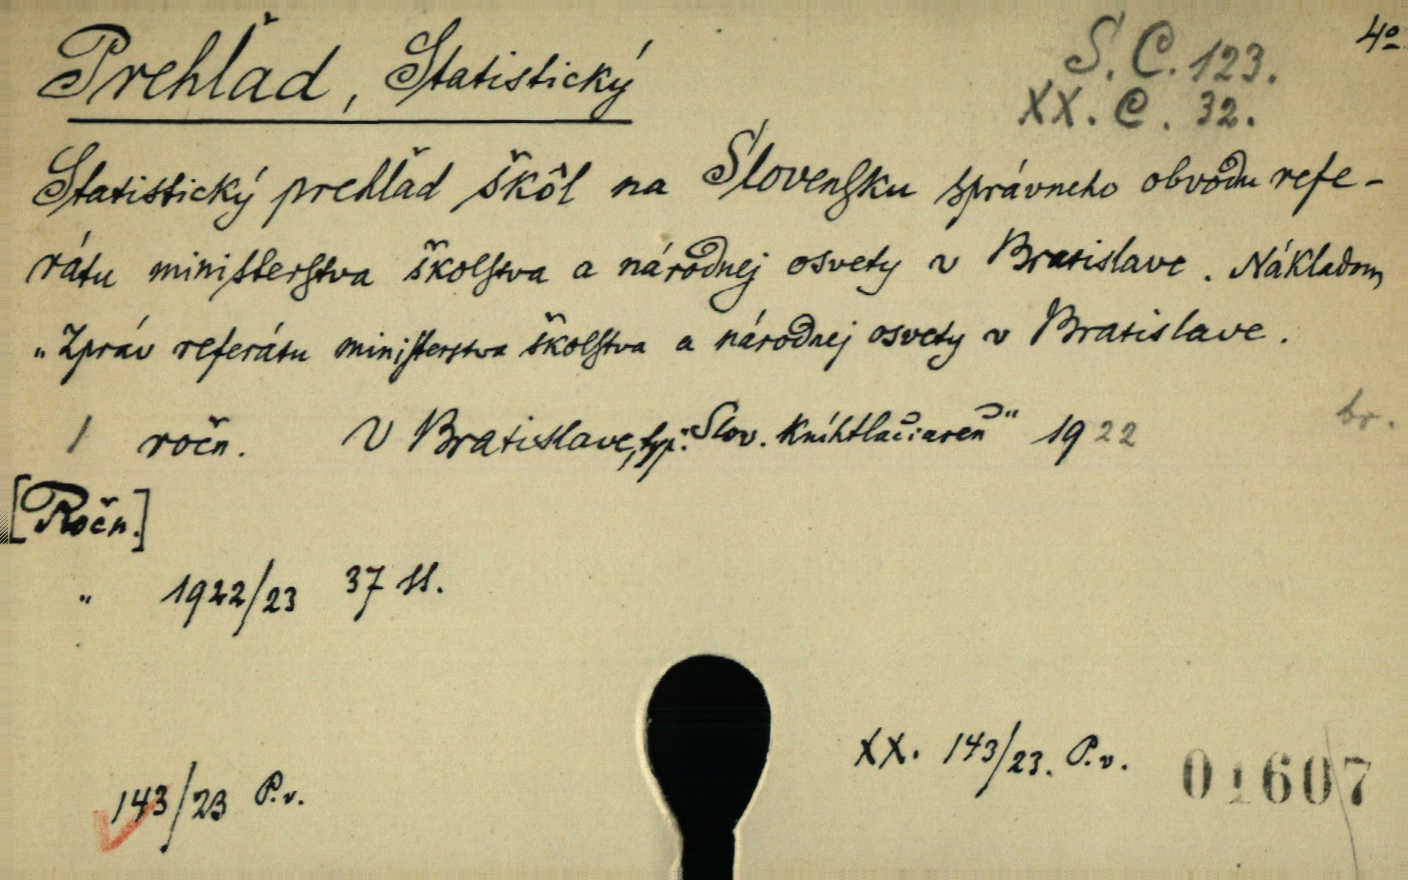 4º
Prehľad, Statistický
S. C. 123.
XX. C. 32.
Statistický prehľad škôl na Slovensku správneho obvodu refe-
rátu ministerstva školstva a národnej osvety v Bratislave. Nákladom
„Zpráv referátu ministerstva školstva a národnej osvety v Bratislave.
1 ročn. V Bratislave, typ. „Slov. Kníhtlačiareň" 1922 br.
[Ročn.]
„ 1922/23 37 ss.
XX. 143/23. P.v. 01607
143/23 P.v.